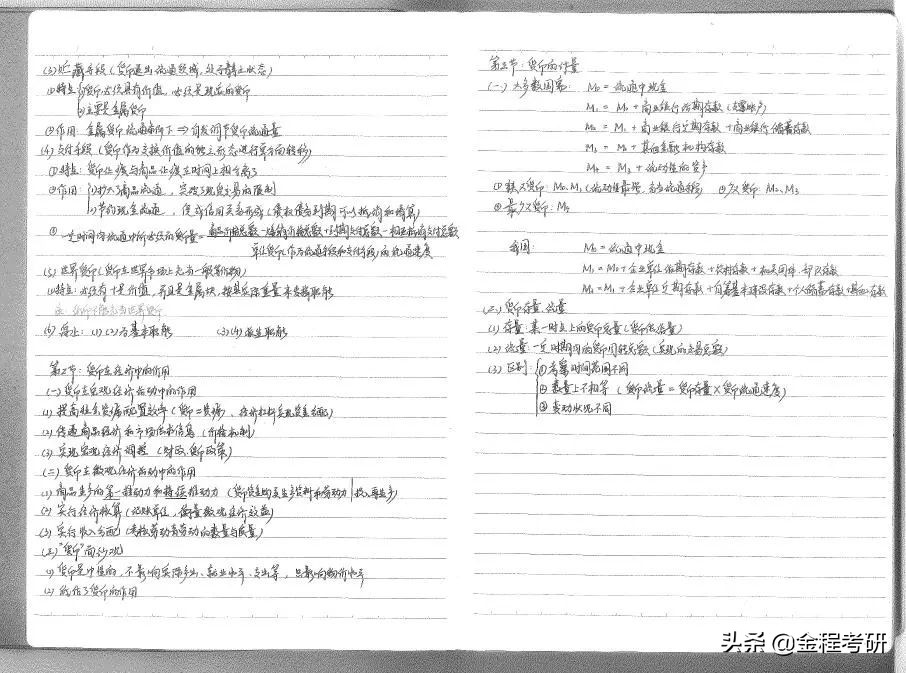 (3)贮藏手段(货币退出流通领域,处于静止状态)
①特点 ①货币必须具有价值,必须是现实的货币
②主要是金属货币
②作用:金属货币流通条件下 ⇒ 自发调节货币流通量
(4)支付手段(货币作为交换价值的独立形态进行单方面转移)
①特点:货币让渡与商品让渡在时间上相分离了
②作用:(1)扩大了商品流通,突破了现货交易的限制
(2)节约现金流通,促成信用关系形成(债权债务到期可以抵消和清算)
③ 一定时间内流通中所必须的货币量=商品价格总额-赊销价格总额+到期支付总额-相互抵消支付总额
单位货币(作为流通手段和支付手段)的流通速度
(5)世界货币(货币在世界市场上充当一般等价物)
①特点:必须有十足价值,而且是金属块,按其实际重量来发挥职能
(6)总结:(1)(2)为基本职能 (3)(4)派生职能
第二节:货币在经济中的作用
(一)货币在宏观经济活动中的作用
(1)提高社会资源配置效率(货币=资源)
(2)传递商品经济和市场供求信息(价格机制)
(3)实现宏观经济调控(财政、货币政策)
(二)货币在微观经济活动中的作用
(1)商品生产的第一推动力和持续推动力(货币资金购买生产资料和劳动力 投入再生产)
(2)实行经济核算(记账单位,衡量微观经济效益)
(3)实行收入分配(考核劳动者劳动的数量与质量)
(三)"货币"面纱观
(1)货币是中性的,不影响实际产出、就业水平、支出等,只影响物价水平
(2)低估了货币的作用
第三节:货币的计量
(一)大多数国家: M₀=流通中现金
M₁=M₀+商业银行活期存款(支票账户)
M₂=M₁+商业银行定期存款+商业银行储蓄存款
M₃=M₂+其他金融机构存款
M₄=M₃+流动性的资产
①狭义货币:M₀、M₁(流动性最强) ②广义货币:M₂、M₃
③最广义货币:M₄
我国: M₀=流通中现金
M₁=M₀+企业单位活期存款+农村存款+机关团体、部队存款
M₂=M₁+企业单位定期存款+自筹基本建设存款+个人储蓄存款+其他存款
(二)货币存量、流量
(1)存量:某一时点上的货币总量(货币供给量)
(2)流量:一定时期内的货币周转总额(实现的交易总额)
(3)区别 ①考察时间范围不同
②数量上不相等(货币流量=货币存量×货币流通速度)
③变动状况不同
头条 @金程考研